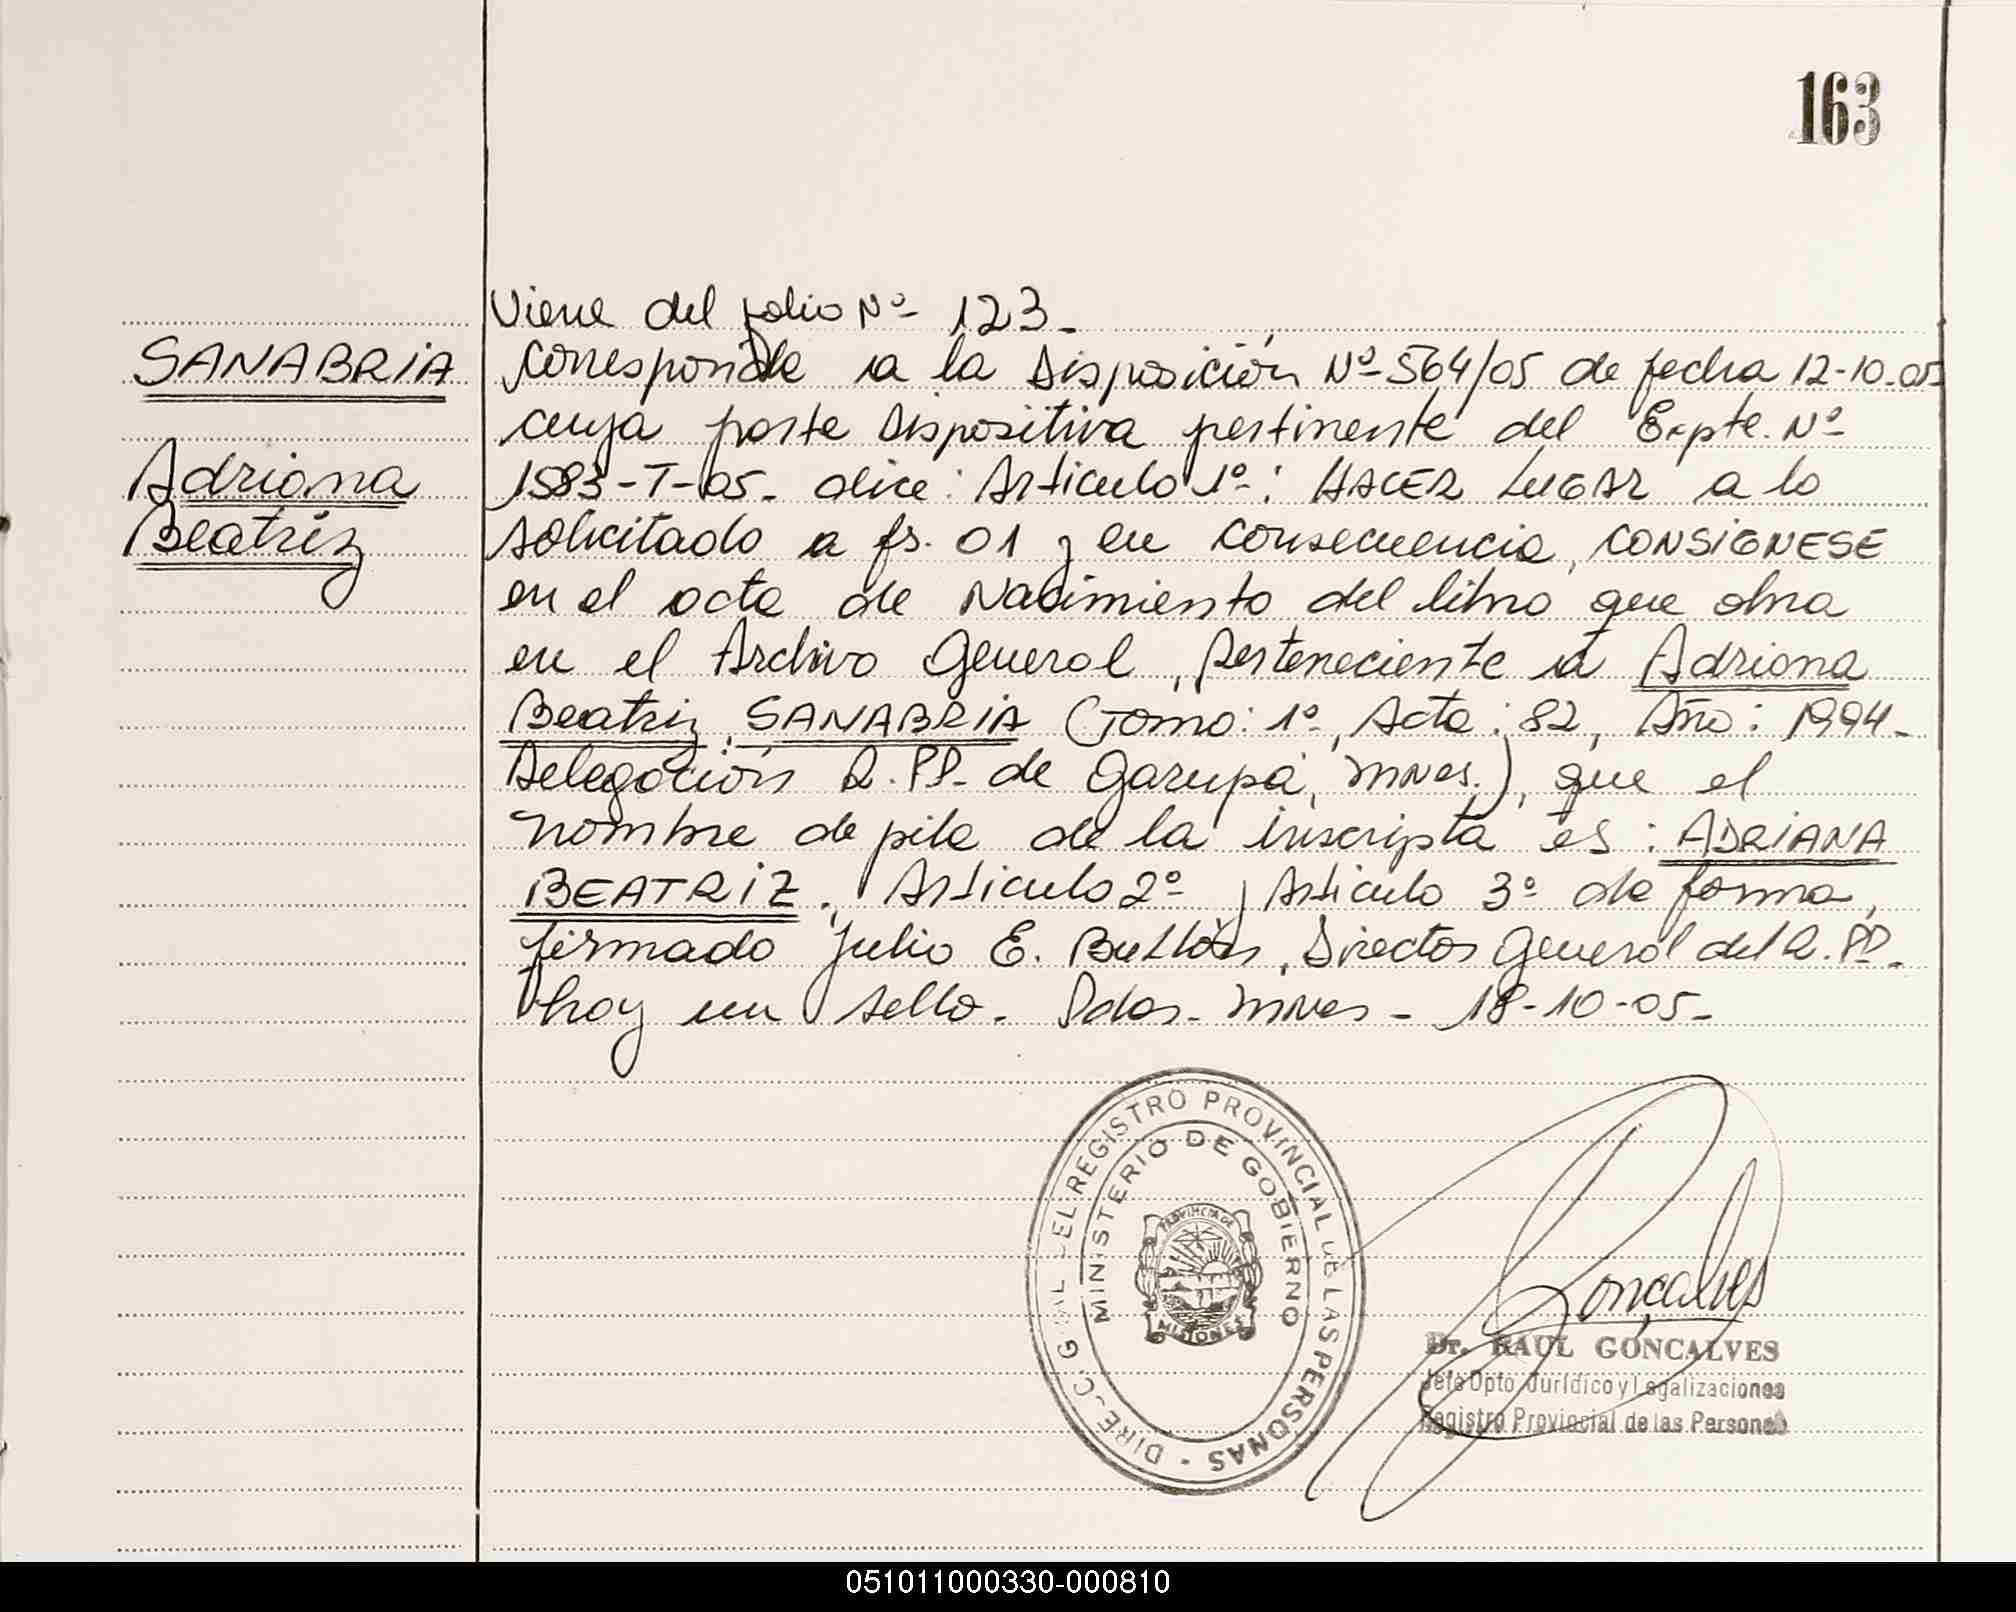 163
Viene del folio Nº 123.
SANABRIA
Adriana
Beatriz
Corresponde a la Disposición Nº 564/05 de fecha 12-10-05
cuya parte Dispositiva pertinente del Expte. Nº
1583-T-05. dice: Articulo 1º: HACER LUGAR a lo
solicitado a fs. 01 y en consecuencia, CONSIGNESE
en el acta de Nacimiento del libro que obra
en el Archivo General, perteneciente a Adriana
Beatriz SANABRIA (Tomo: 1º, Acta: 82, Año: 1994-
Delegación R.PP. de Garupá, Mnes.), que el
nombre de pila de la inscripta es: ADRIANA
BEATRIZ. Articulo 2º y Articulo 3º de forma,
firmado Julio E. Director General del R.PP.
hay un sello. Pdas. Mnes - 18-10-05-
REGISTRO PROVINCIAL DE LAS PERSONAS
MINISTERIO DE GOBIERNO
PROVINCIA DE
MISIONES
Gonçalves
Dr. RAUL GONCALVES
Jefe Dpto Jurídico y Legalizaciones
Registro Provincial de las Personas
051011000330-000810